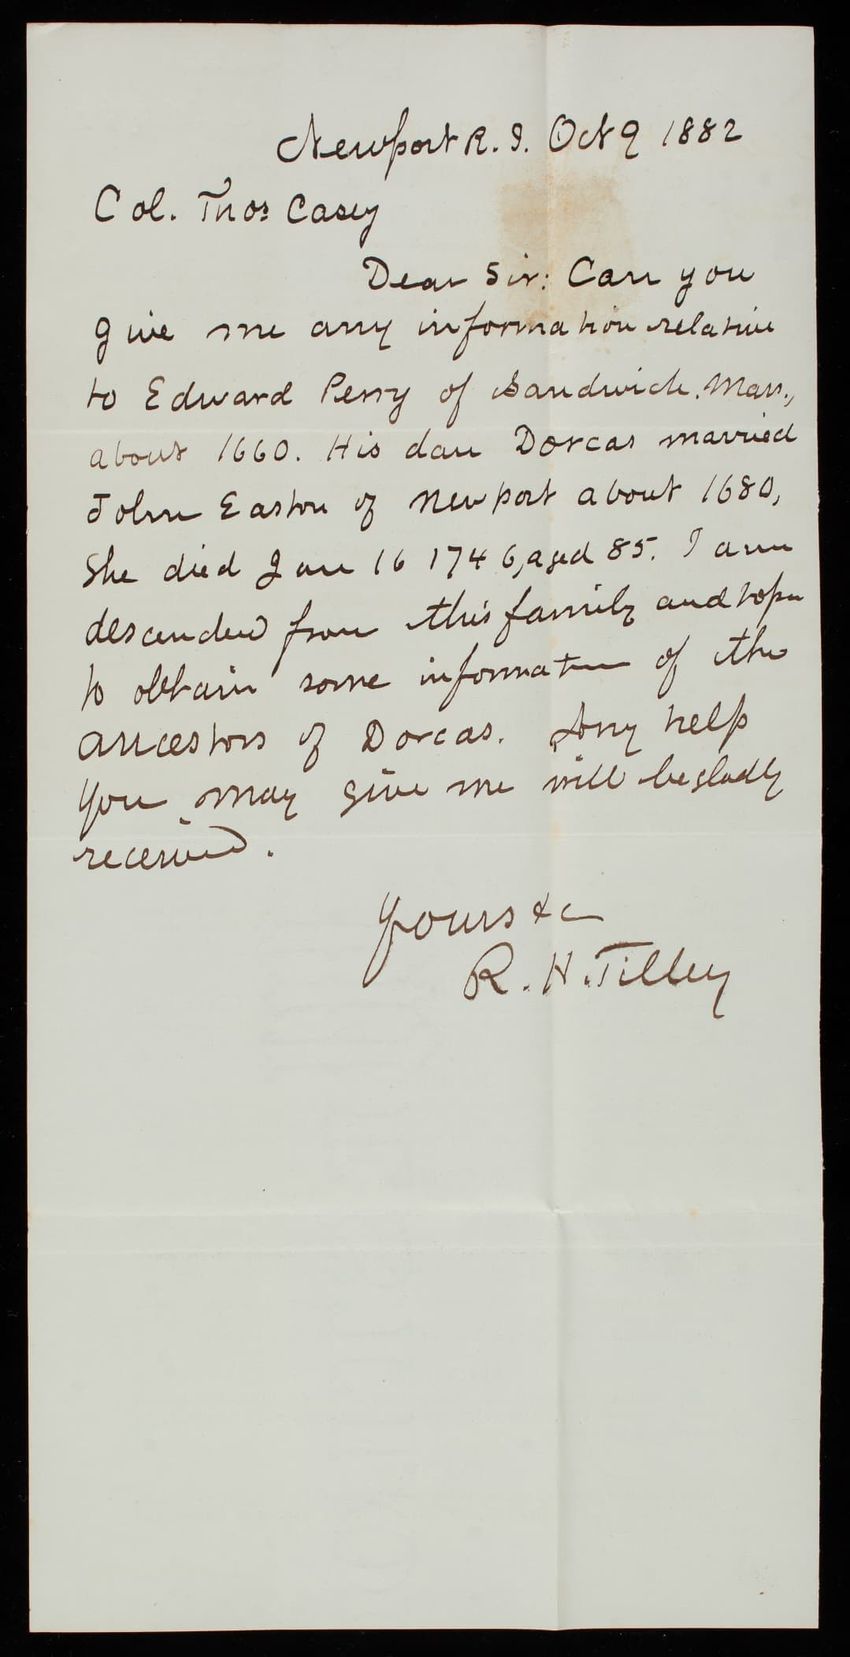 Newport R. I. Oct 9 1882
Col. Thos Casey
Dear Sir: Can you
give me any information relative
to Edward Perry of Sandwich. Mass.,
about 1660. His dau Dorcas married
John Easton of Newport about 1680,
She died Jan 16 1746, aged 85. I am
descended from this family and hope
to obtain some information of the
ancestors of Dorcas. Any help
you may give me will be gladly
received.
Yours &c
R. H. Tilley